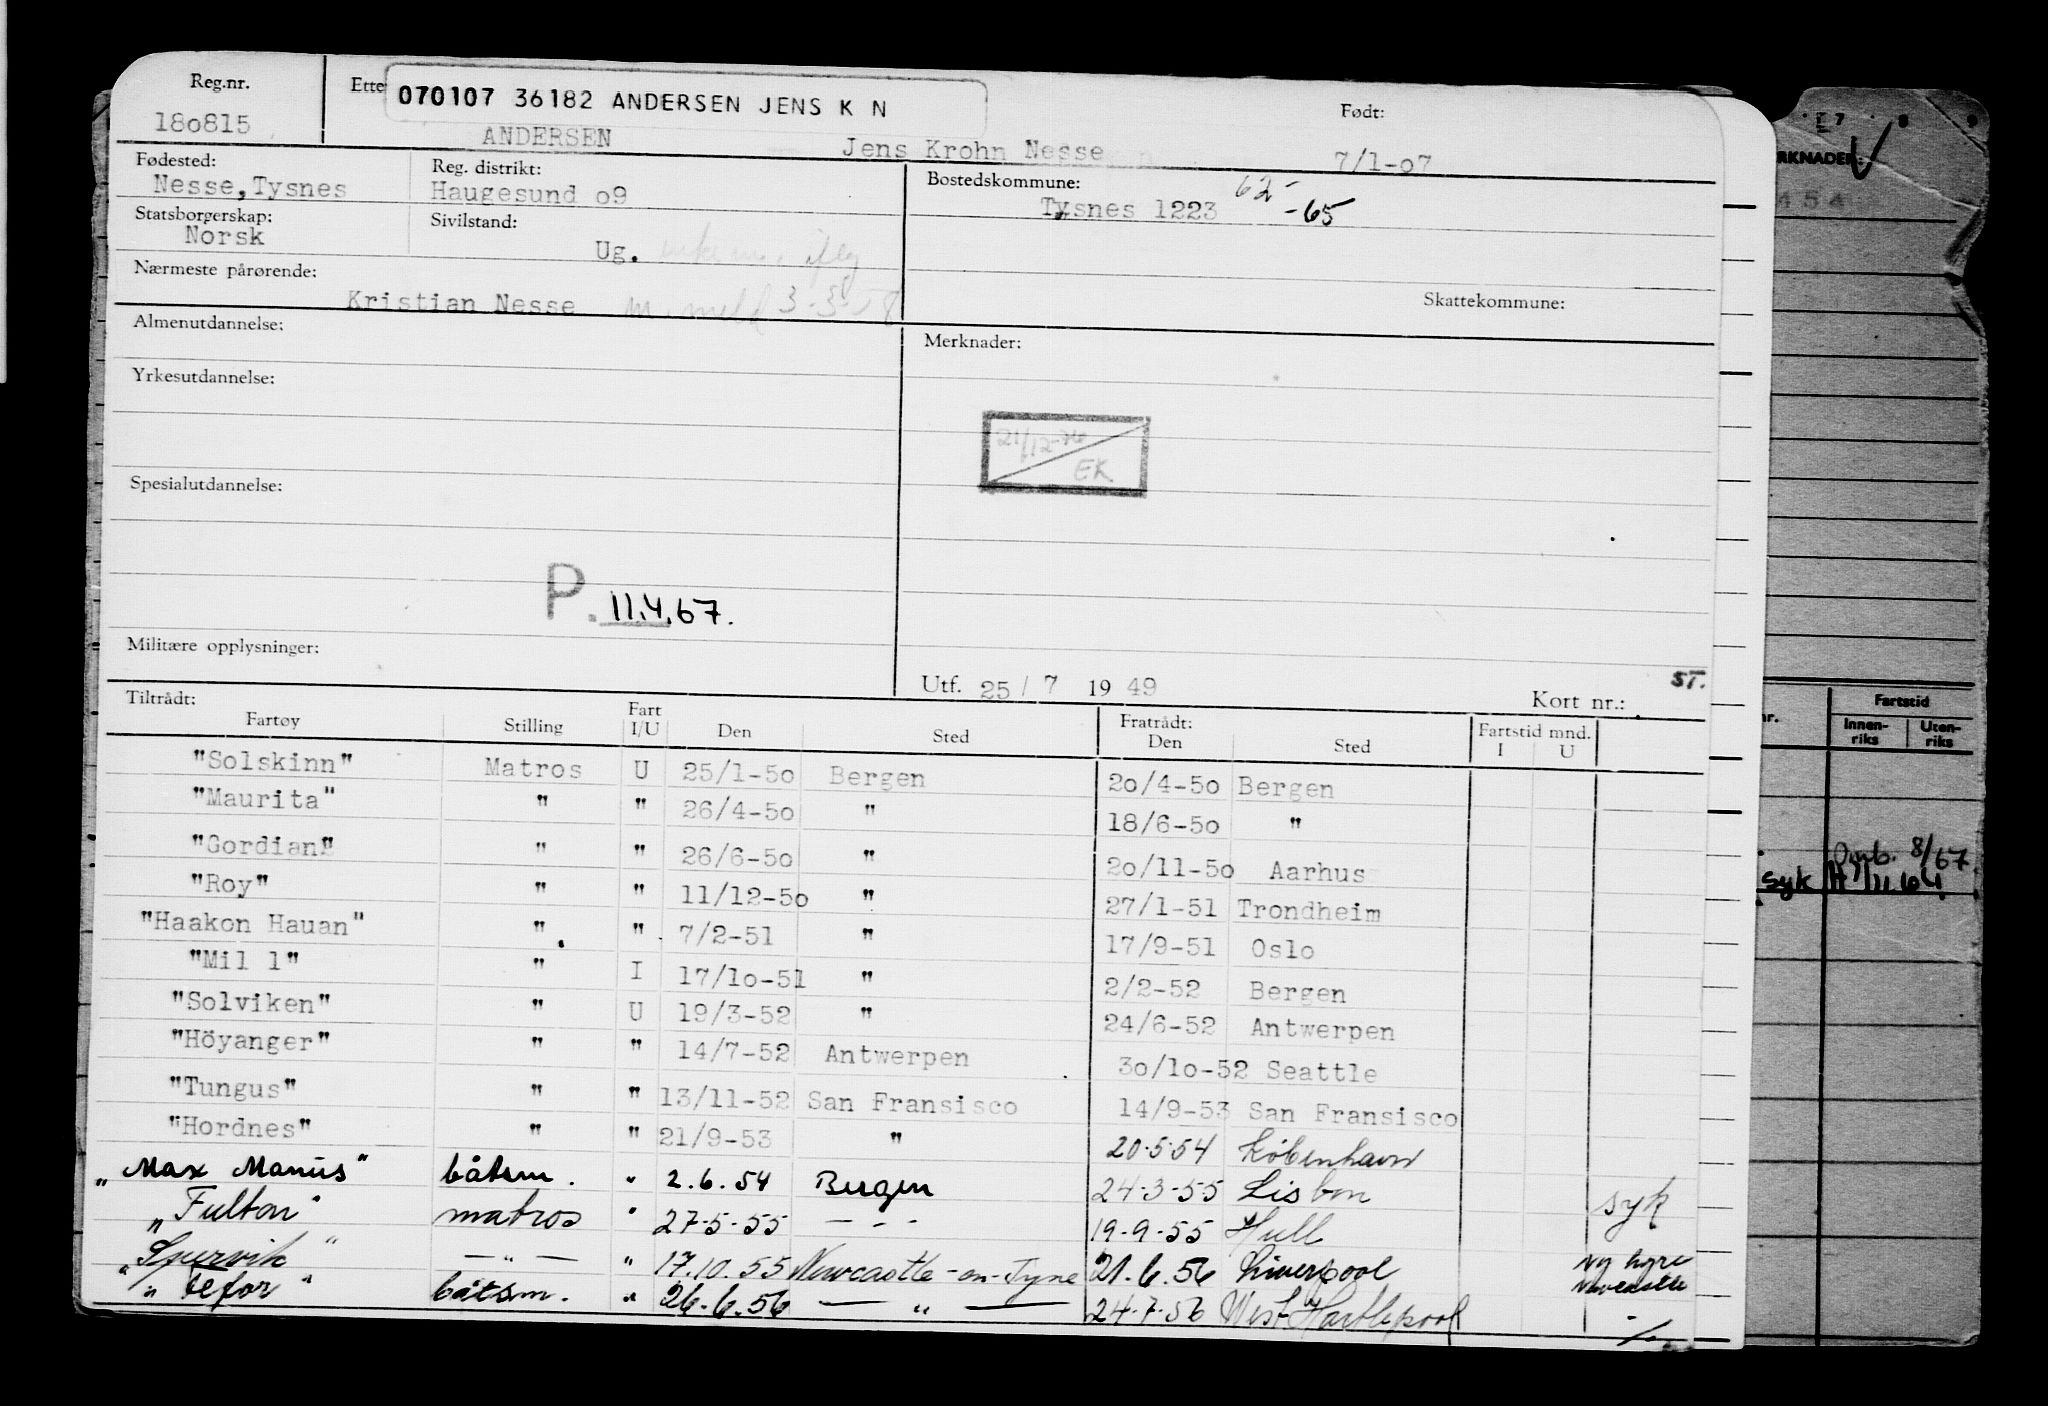 Reg.nr. Ette 070107 36182 ANDERSEN JENS K N Født:
180815 ANDERSEN Jens Krohn Nesse 7/1-07
Fødested: Reg. distrikt: Bostedskommune:
Nesse, Tysnes Haugesund o9 Tysnes 1223 62- -65
Statsborgerskap: Sivilstand:
Norsk Ug. iflg
Nærmeste pårørende: Skattekommune:
Kristian Nesse m. meld 3-3-58
Almenutdannelse: Merknader:
Yrkesutdannelse:
21/12- EK
Spesialutdannelse:
P. 11.4.67.
Militære opplysninger:
Utf. 25/7 1949 Kort nr.: ST.
Tiltrådt: Fratrådt:
Fartøy Stilling Fart I/U Den Sted Den Sted Fartstid mnd. I U
"Solskinn" Matros U 25/1-50 Bergen 20/4-50 Bergen
"Maurita" " " 26/4-50 " 18/6-50 "
"Gordian" " " 26/6-50 " 20/11-50 Aarhus
"Roy" " " 11/12-50 " 27/1-51 Trondheim
"Haakon Hauan" " " 7/2-51 " 17/9-51 Oslo
"Mil 1" " I 17/10-51 " 2/2-52 Bergen
"Solviken" " U 19/3-52 " 24/6-52 Antwerpen
"Höyanger" " " 14/7-52 Antwerpen 30/10-52 Seattle
"Tungus" " " 13/11-52 San Fransisco 14/9-53 San Fransisco
"Hordnes" " " 21/9-53 " 20.5.54 København
"Max Manus" båtsm. " 2.6.54 Bergen 24.3.55 Lisbon syk
"Fulton" matros " 27.5.55 — - - 19.9.55 Hull
"Spurvik" — " — " 17.10.55 Newcastle-on-Tyne 21.6.56 Liverpool ny hyre Newcastle
"Tefor" båtsm. " 26.6.56 — " — 24.7.56 West Hartlepool ./.
RKNADER:
454
nr. Fartstid
Innen-riks Uten-riks
8/67
syk